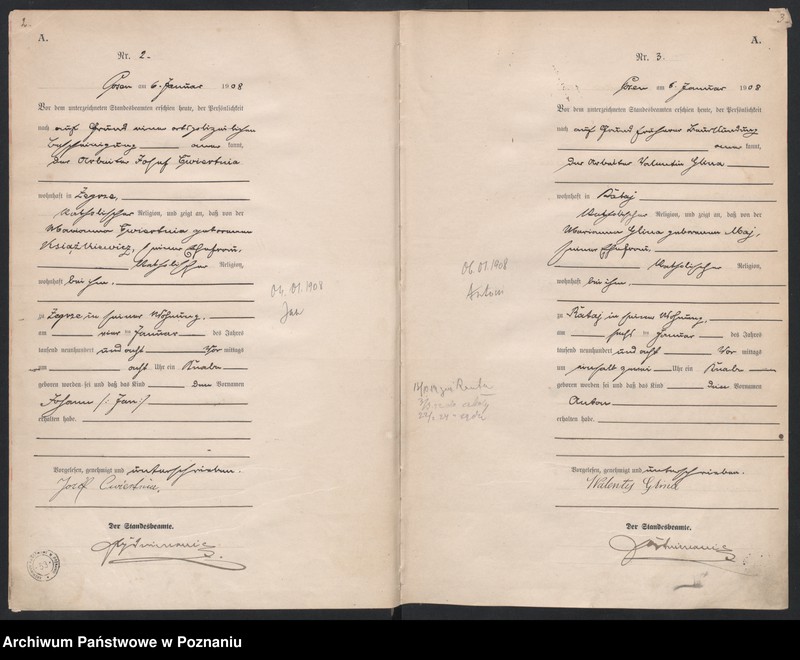 2.
A.
Nr. 2.
am 6. Januar 1908
Vor dem unterzeichneten Standesbeamten erschien heute, der Persönlichkeit
nach auf Grund einer ortspolizeilichen
Bescheinigung aner kannt,
der Arbeiter Josef Cwiertnia
wohnhaft in Zegrze,
katholischer Religion, und zeigt an, daß von der
Marianna Cwiertnia geborenen
Książkiewicz, seiner Ehefrau,
katholischer Religion,
wohnhaft bei ihm,
zu Zegrze in seiner Wohnung,
am vier ten Januar des Jahres
tausend neunhundert und acht Vor mittags
um acht Uhr ein Knabe
geboren worden sei und daß das Kind den Vornamen
Johann /: Jan :/
erhalten habe.
Vorgelesen, genehmigt und unterschrieben.
Josef Cwiertnia.
Der Standesbeamte.
04.01.1908
Jan
3.
A.
Nr. 3.
am 6. Januar 1908
Vor dem unterzeichneten Standesbeamten erschien heute, der Persönlichkeit
nach auf Grund früherer Beurkundung
aner kannt,
der Arbeiter Valentin Glina
wohnhaft in Rataj
katholischer Religion, und zeigt an, daß von der
Marianna Glina geborenen Maj,
seiner Ehefrau,
katholischer Religion,
wohnhaft bei ihm,
zu Rataj in seiner Wohnung,
am sechs ten Januar des Jahres
tausend neunhundert und acht Vor mittags
um einhalb zwei Uhr ein Knabe
geboren worden sei und daß das Kind den Vornamen
Anton
erhalten habe.
Vorgelesen, genehmigt und unterschrieben.
Walenty Glina
Der Standesbeamte.
06.01.1908
Antoni
Archiwum Państwowe w Poznaniu